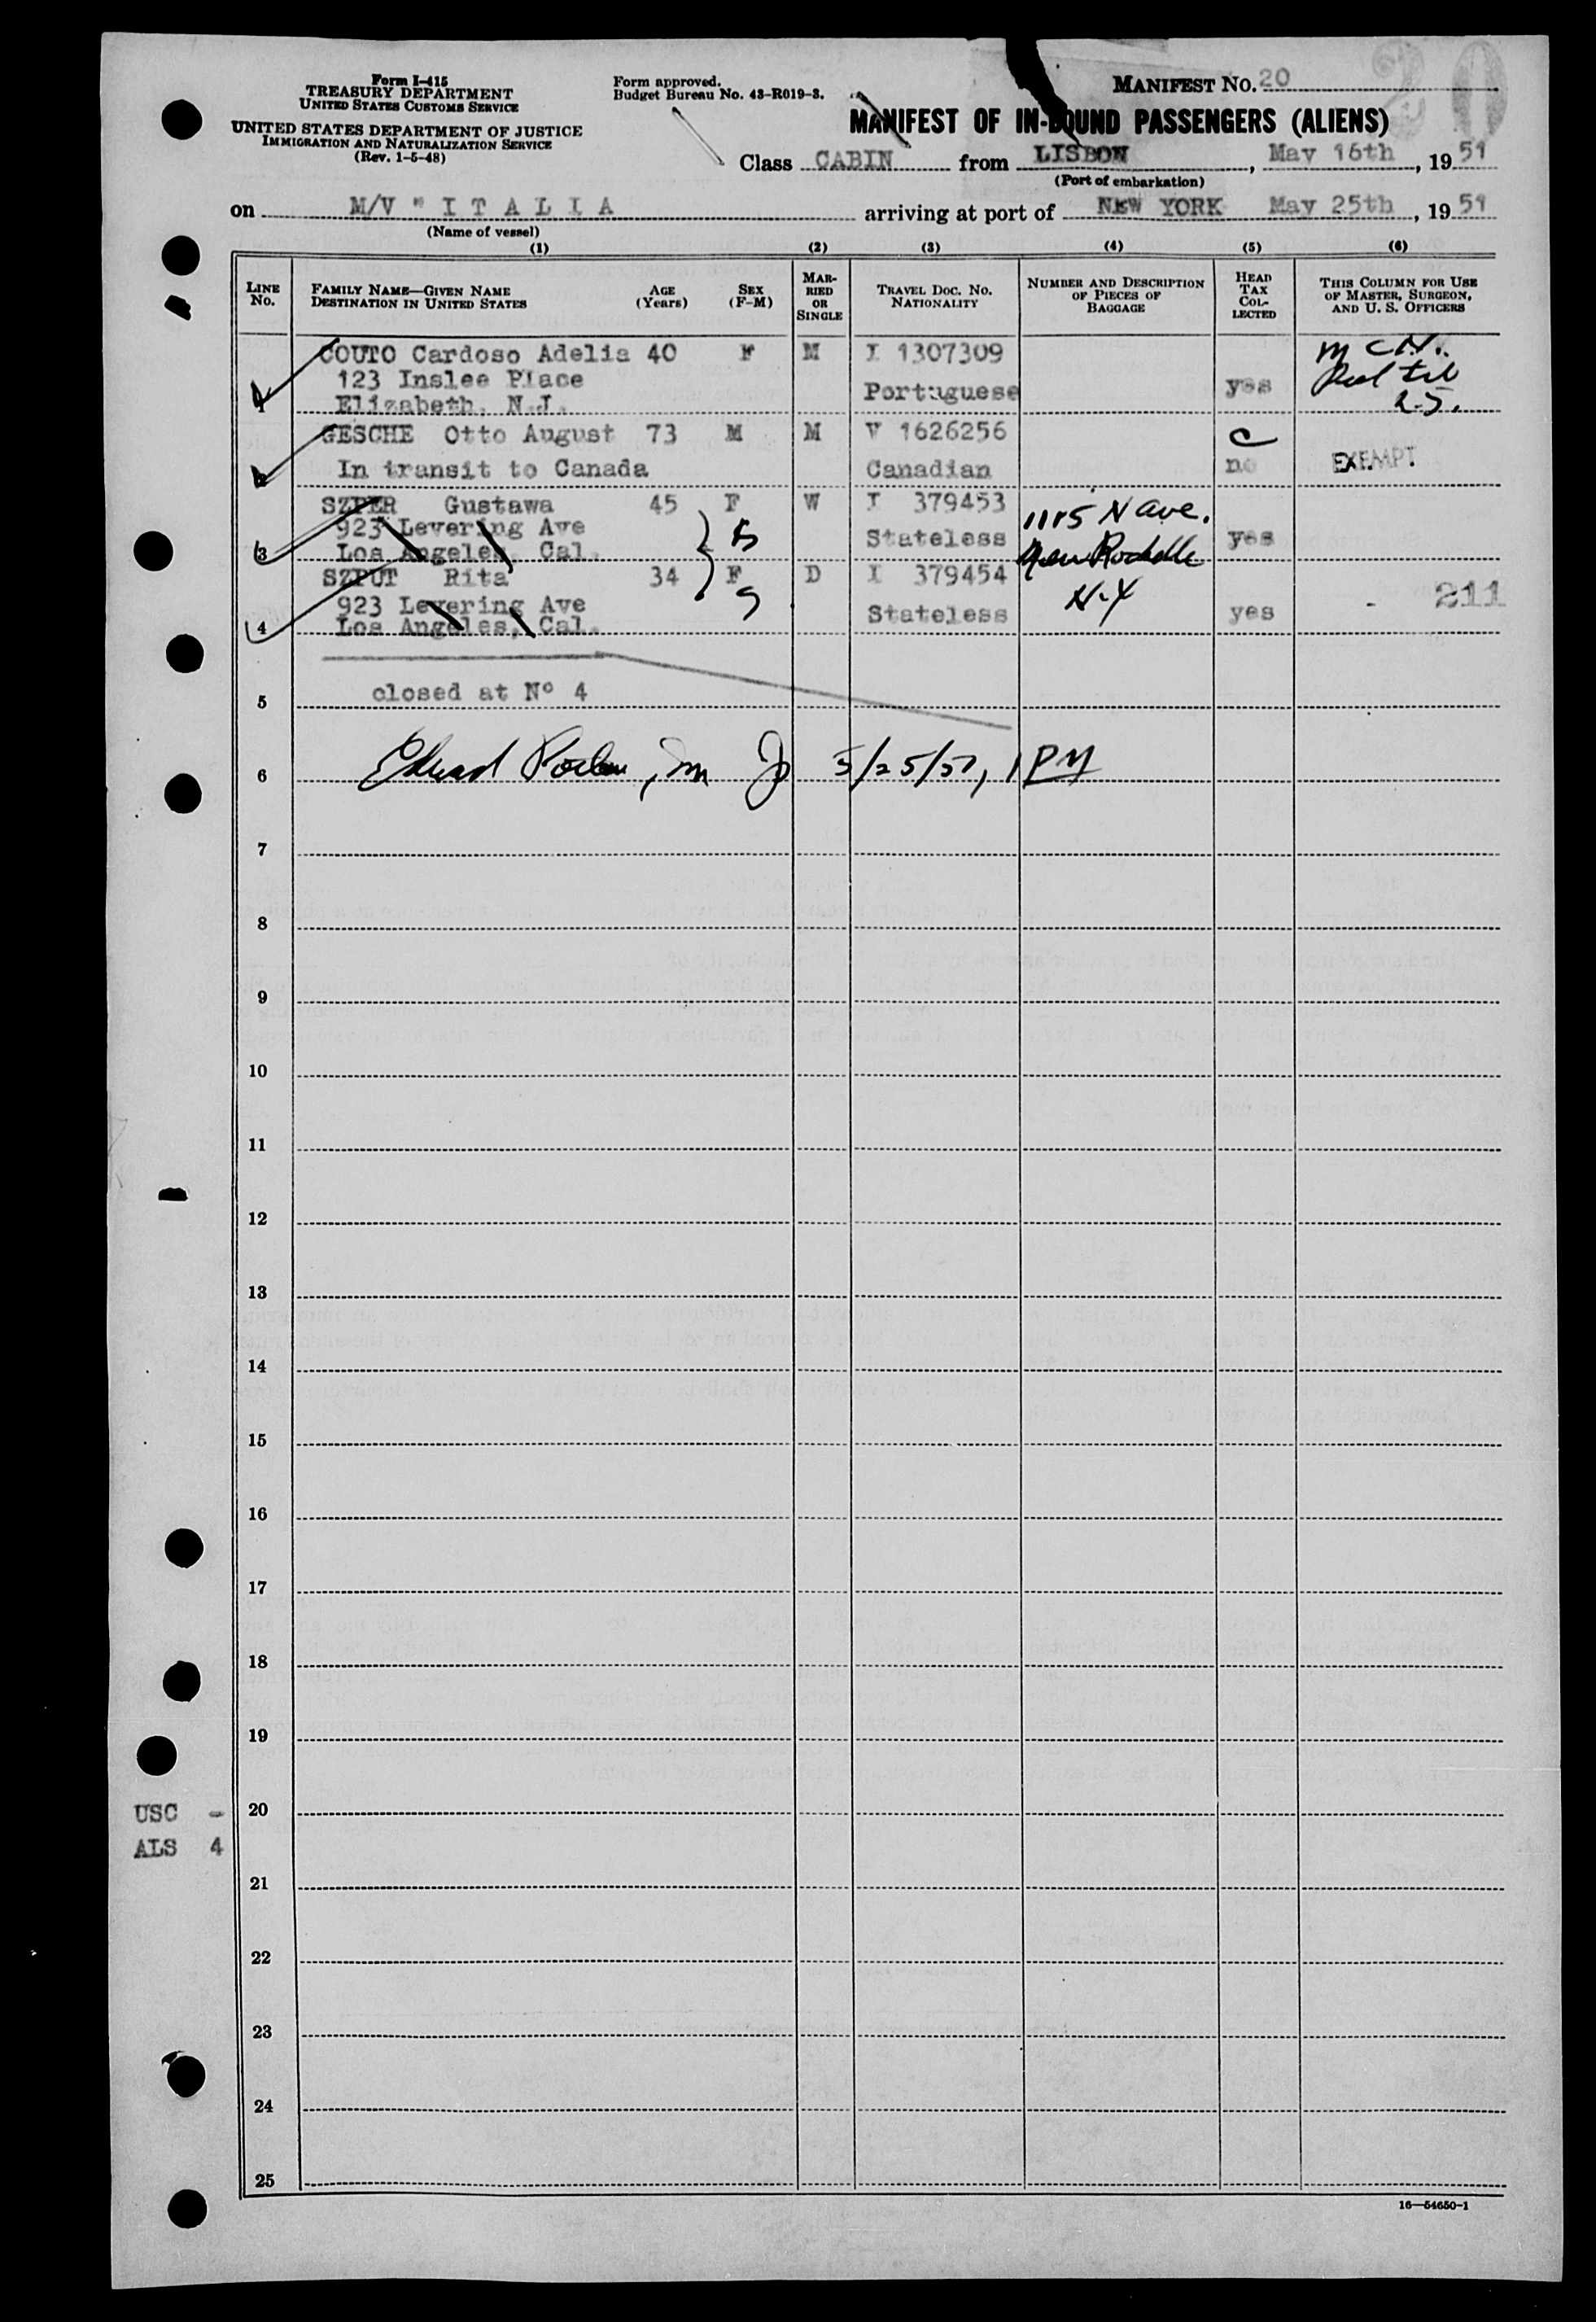 Form I-415
TREASURY DEPARTMENT
UNITED STATES CUSTOMS SERVICE
UNITED STATES DEPARTMENT OF JUSTICE
IMMIGRATION AND NATURALIZATION SERVICE
(Rev. 1-5-48)
Form approved.
Budget Bureau No. 43-R019-3.
MANIFEST No. 20
20
MANIFEST OF IN-BOUND PASSENGERS (ALIENS)
Class CABIN from LISBON, May 16th, 1951
(Port of embarkation)
on M/V " I T A L I A arriving at port of NEW YORK May 25th, 1951
(Name of vessel)
(1) (2) (3) (4) (5) (6)
LINE No.
FAMILY NAME—GIVEN NAME
DESTINATION IN UNITED STATES
AGE (Years)
SEX (F-M)
MARRIED OR SINGLE
TRAVEL DOC. NO.
NATIONALITY
NUMBER AND DESCRIPTION OF PIECES OF BAGGAGE
HEAD TAX COLLECTED
THIS COLUMN FOR USE OF MASTER, SURGEON, AND U. S. OFFICERS
COUTO Cardoso Adelia 40 F M I 1307309
123 Inslee Place Portuguese yes
1 Elizabeth, N.J.
GESCHE Otto August 73 M M V 1626256 C
2 In transit to Canada Canadian no EXEMPT
SZPER Gustawa 45 F W I 379453 1185 N Ave.
923 Levering Ave Stateless yes
3 Los Angeles, Cal. New Rochelle
SZPUT Rita 34 F D I 379454 N.Y
923 Levering Ave Stateless yes - 211
4 Los Angeles, Cal.
5 closed at Nº 4
6 5/25/51, 1 PM
7
8
9
10
11
12
13
14
15
16
17
18
19
USC - 20
ALS 4
21
22
23
24
25
16—54650-1